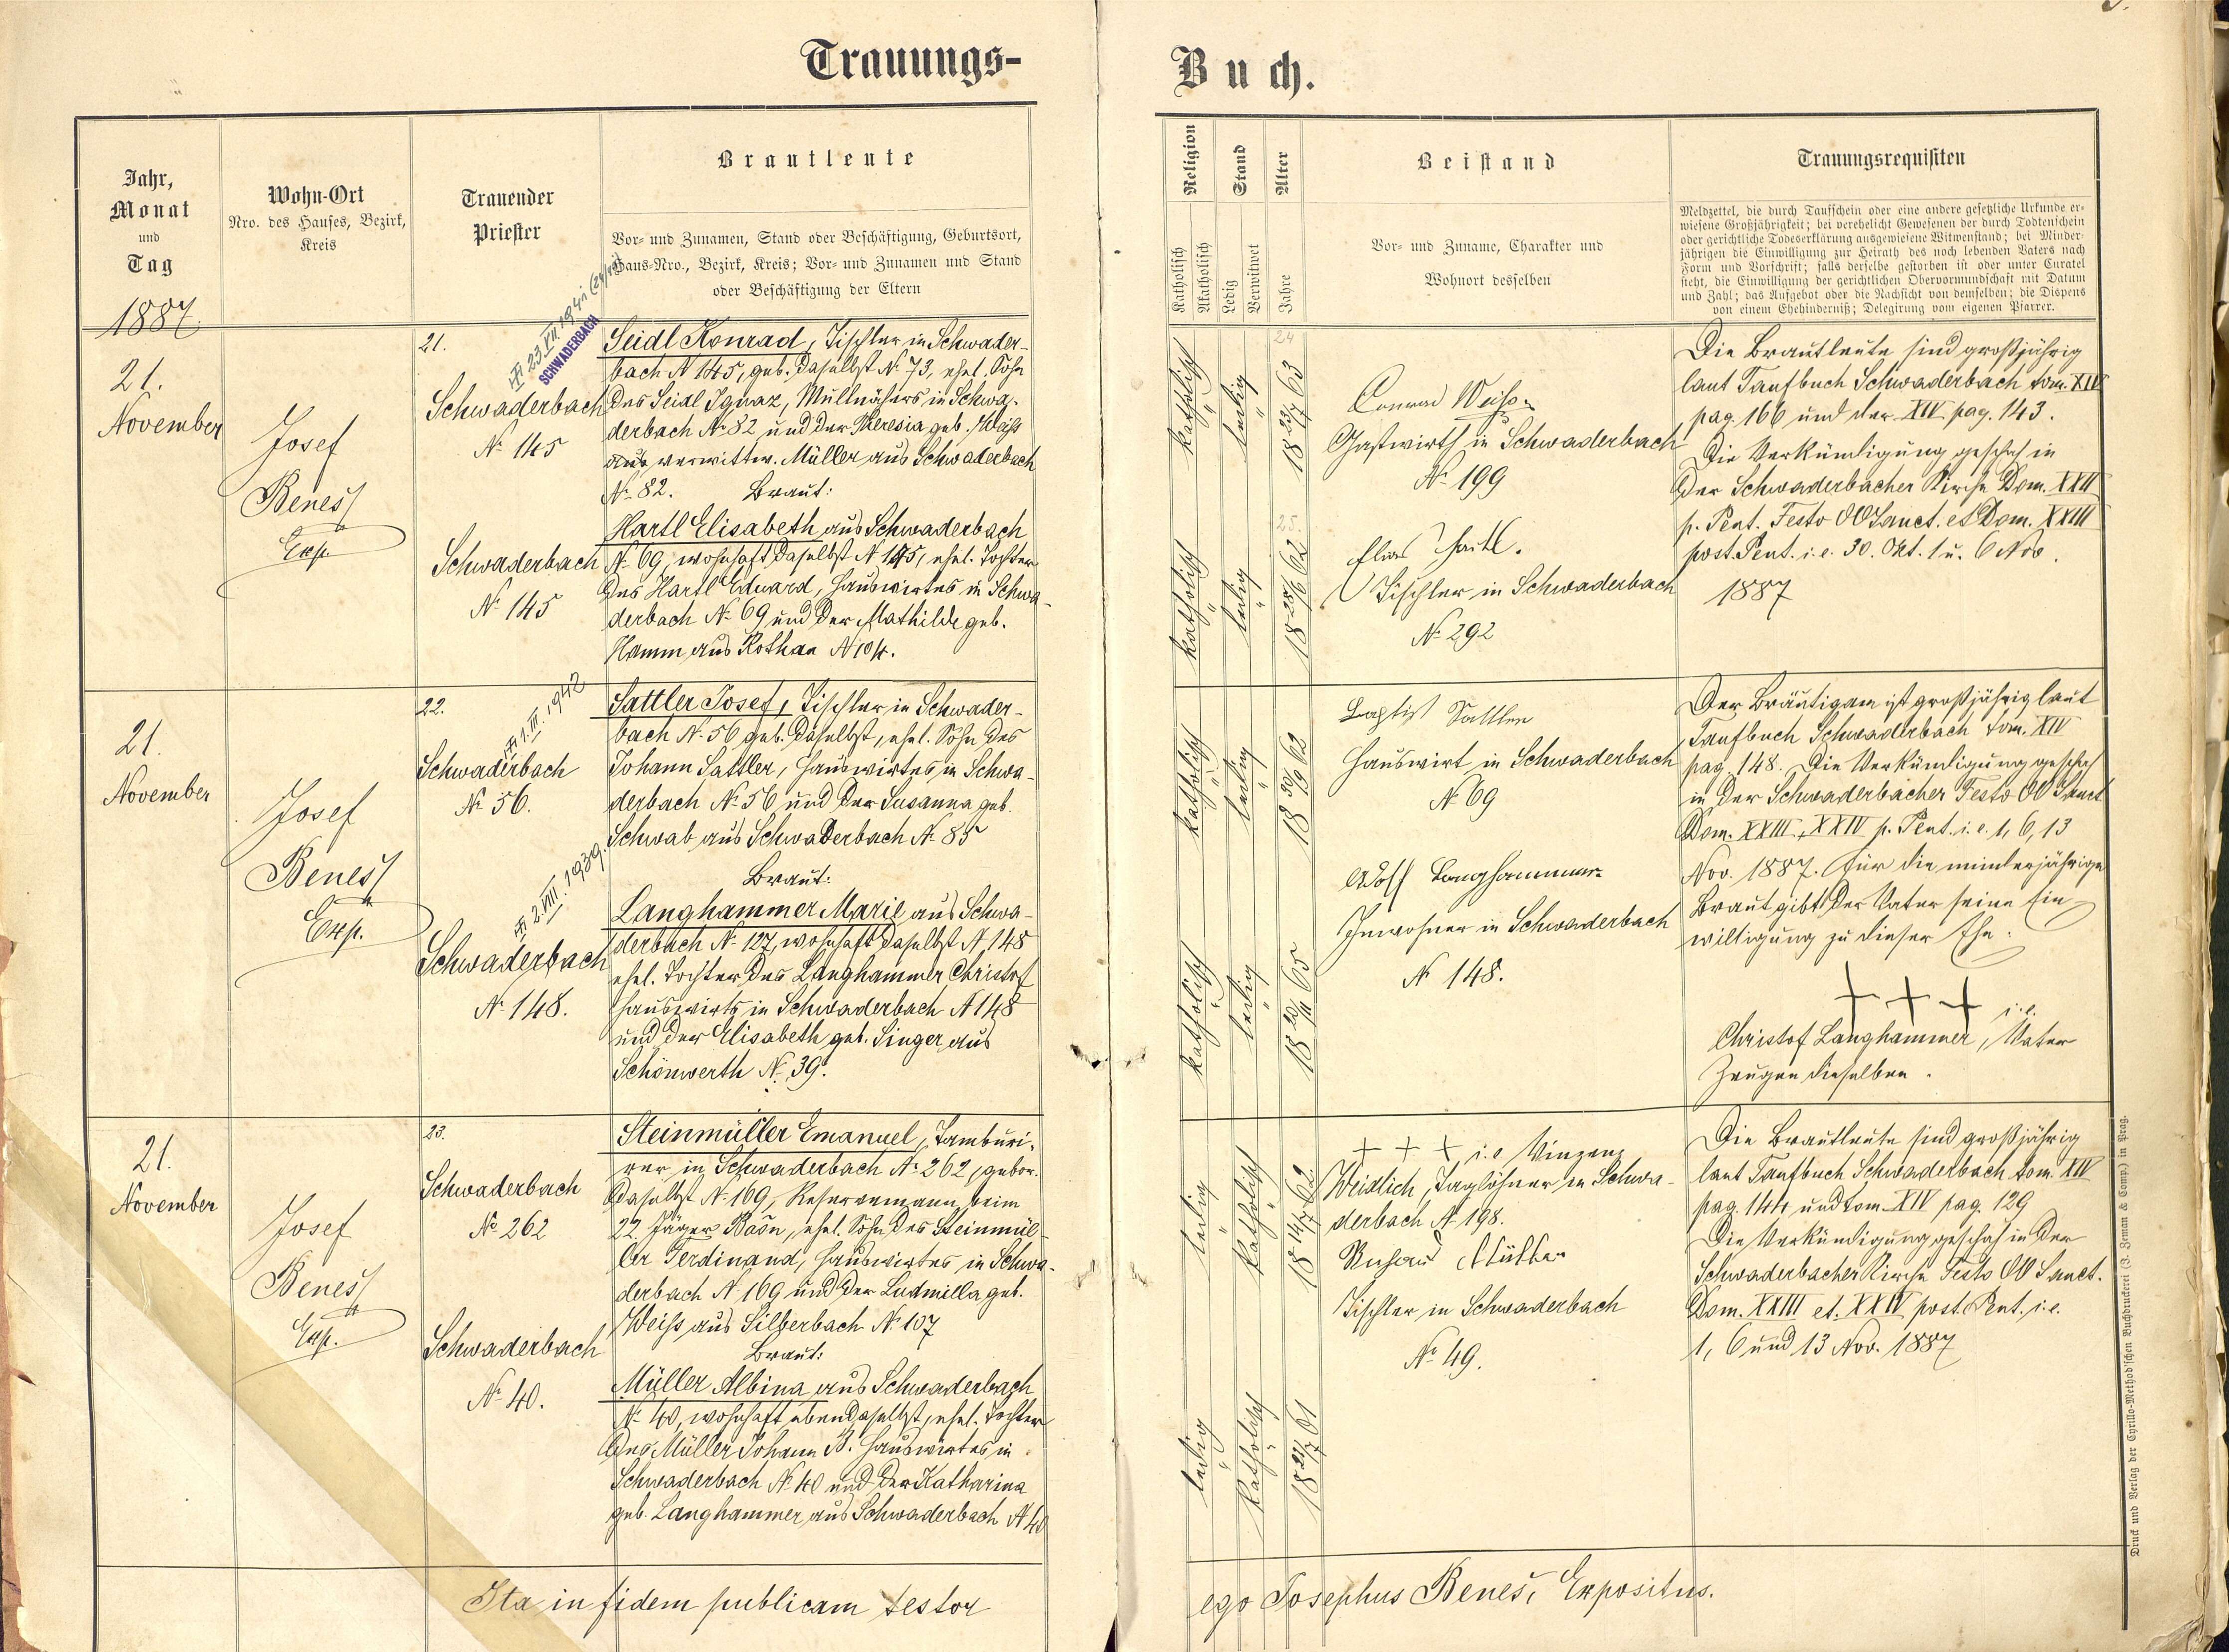 Trauungs-
Buch.
Jahr,
Monat
und
Tag
1887.
Wohn-Ort
Nro. des Hauses, Bezirk,
Kreis
Trauender
Priester
Brautleute
Vor- und Zunamen, Stand oder Beschäftigung, Geburtsort,
Haus-Nro., Bezirk, Kreis; Vor- und Zunamen und Stand
oder Beschäftigung der Eltern
Religion
Katholisch
Akatholisch
Stand
Ledig
Verwitwet
Alter
Jahre
Beistand
Vor- und Zuname, Charakter und
Wohnort desselben
Trauungsrequisiten
Meldzettel, die durch Taufschein oder eine andere gesetzliche Urkunde er-
wiesene Großjährigkeit; bei verehelicht Gewesenen der durch Todtenschein
oder gerichtliche Todeserklärung ausgewiesene Witwenstand; bei Minder-
jährigen die Einwilligung zur Heirath des noch lebenden Vaters nach
Form und Vorschrift; falls derselbe gestorben ist oder unter Curatel
steht, die Einwilligung der gerichtlichen Obervormundschaft mit Datum
und Zahl; das Aufgebot oder die Nachsicht von demselben; die Dispens
von einem Ehehinderniß; Delegirung vom eigenen Pfarrer.
21.
November
Josef
Beneš
Exp.
21.
Schwaderbach
N. 145
23. VII 194
SCHWADERBACH
Seidl Konrad, Tischler in Schwader-
bach N 145, geb. daselbst N. 73, ehel. Sohn
des Seidl Ignaz, Müllnähers in Schwa-
derbach N. 82 und der Theresia geb. Weiss
aus verwittw. Müller aus Schwaderbach
N. 82. Braut:
Schwaderbach
N. 145
Hartl Elisabeth aus Schwaderbach
N. 69, wohnhaft daselbst N 145, ehel. Tochter
des Hartl Eduard, Hauswirtes in Schwa-
derbach N. 69 und der Mathilde geb.
Hamm aus Rothau N 104.
katholisch
ledig
24
18 23/7 63
katholisch
ledig
25.
18 28/6 62
Conrad Weiss
Gastwirth in Schwaderbach
N. 199
Elias Hartl.
Tischler in Schwaderbach
N. 292
Die Brautleute sind großjährig
laut Taufbuch Schwaderbach tom. XIV
pag. 166 und der XIV pag. 143.
Die Verkündigung geschah in
der Schwaderbacher Kirche Dom. XXII
p. Pent. Festo OO Sanct. et Dom. XXIII
post. Pent. i. e. 30. Okt. 1 u. 6 Nov.
1887
21.
November
Josef
Beneš
Exp.
22.
Schwaderbach
N. 56.
1. III. 1942
Sattler Josef, Tischler in Schwader-
bach N. 56 geb. daselbst, ehel. Sohn des
Johann Sattler, Hauswirtes in Schwa-
derbach N. 56 und der Susanna geb.
Schwab aus Schwaderbach N. 85
Braut:
2. VIII. 1939.
Schwaderbach
N. 148.
Langhammer Marie aus Schwa-
derbach N. 127, wohnhaft daselbst N 148
ehel. Tochter des Langhammer Christof
Hauswirts in Schwaderbach N 148
und der Elisabeth geb. Singer aus
Schönwerth N. 39.
katholisch
ledig
katholisch
ledig
Baptist Sattler
Hauswirt in Schwaderbach
N 69
Adolf Langhammer
Inwohner in Schwaderbach
N 148.
Der Bräutigam ist großjährig laut
Taufbuch Schwaderbach tom. XIV
pag. 148. Die Verkündigung geschah
in der Schwaderbacher Festo OO Sanct
Dom. XXIII, XXIV p. Pent. i. e. 1, 6, 13
Nov. 1887. Für die minderjährige
Braut gibt der Vater seine Ein-
willigung zu dieser Ehe.
+ + + i. e.
Christof Langhammer, Vater
Zeugen dieselben.
21.
November
Josef
Beneš
Exp.
23.
Schwaderbach
N. 262
Steinmüller Emanuel, Tamburi-
rer in Schwaderbach N. 262, gebor.
daselbst N. 169, Reservemann beim
22. Jäger Baon, ehel. Sohn des Steinmül-
ler Ferdinand, Hauswirtes in Schwa-
derbach N. 169 und der Ludmilla geb.
Weiss aus Silberbach N. 107
Braut:
Schwaderbach
N. 40.
Müller Albina aus Schwaderbach
N. 40, wohnhaft ebendaselbst, ehel. Tochter
des Müller Johann B. Hauswirtes in
Schwaderbach N. 40 und der Katharina
geb. Langhammer aus Schwaderbach N 40
ledig
katholisch
18 14/7 62
ledig
katholisch
18 21/7 61
+ + + i. e. Vinzenz
Weidlich, Taglöhner in Schwa-
derbach N. 198.
Müller
Tischler in Schwaderbach
N. 49.
Die Brautleute sind großjährig
laut Taufbuch Schwaderbach tom. XIV
pag. 144 und tom. XIV pag. 129
Die Verkündigung geschah in der
Schwaderbacher Kirche Festo OO Sanct.
Dom. XXIII et. XXIV post. Pent. i. e.
1, 6 und 13 Nov. 1887
Ita in fidem publicam testor
ego Josephus Beneš, Expositus.
Druck und Verlag der Cyrillo-Method'schen Buchdruckerei (J. Zeman & Comp.) in Prag.